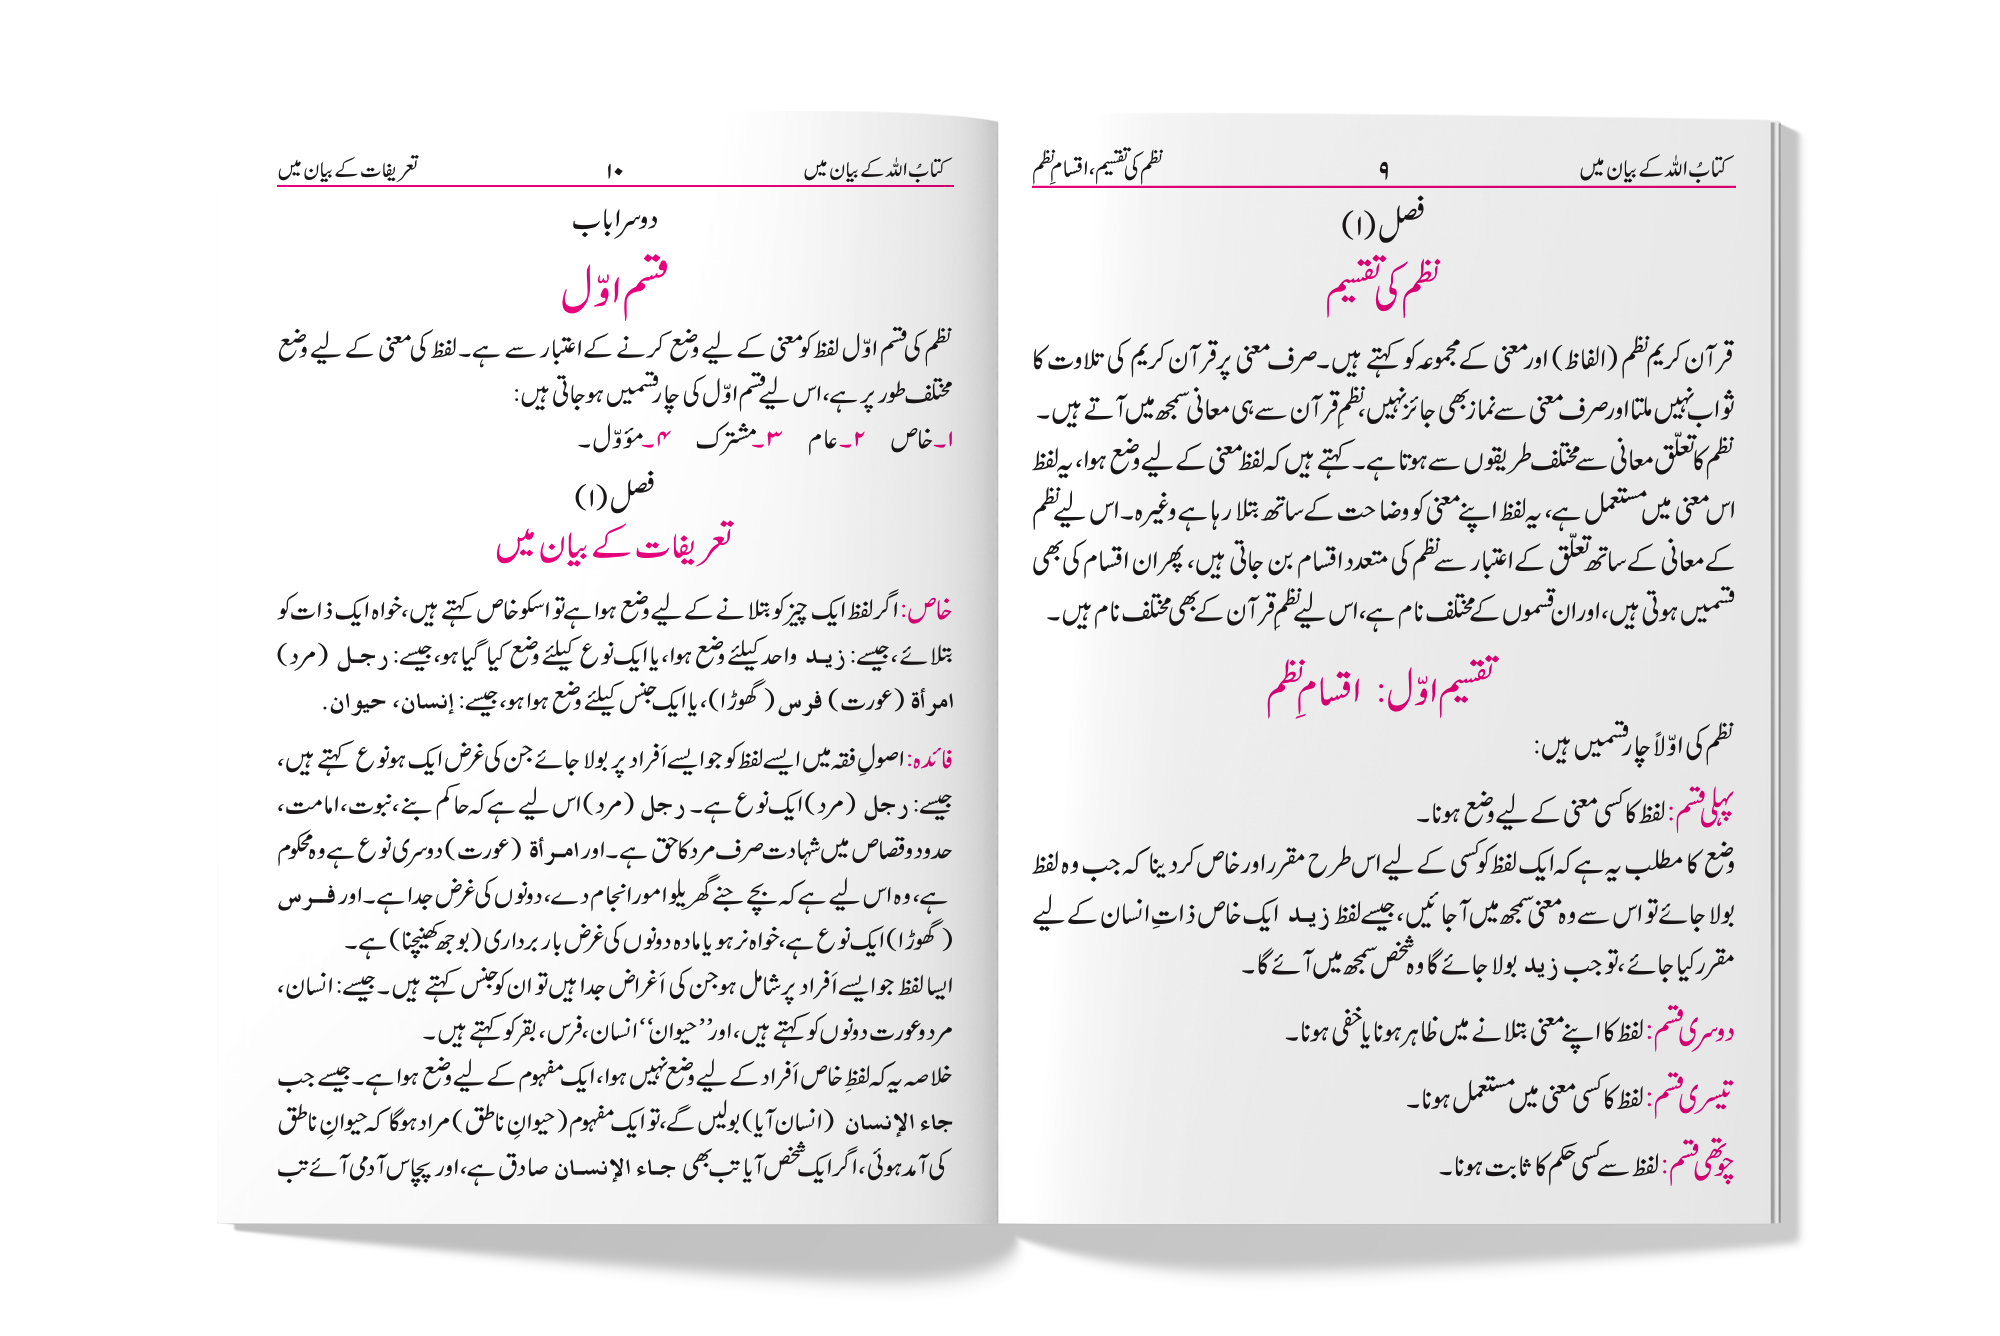 کتابُ اللہ کے بیان میں ۹ نظم کی تقسیم، اقسامِ نظم
فصل (۱)
نظم کی تقسیم
قرآن کریم نظم (الفاظ) اور معنی کے مجموعہ کو کہتے ہیں۔ صرف معنی پر قرآن کریم کی تلاوت کا
ثواب نہیں ملتا اور صرف معنی سے نماز بھی جائز نہیں، نظمِ قرآن سے ہی معانی سمجھ میں آتے ہیں۔
نظم کا تعلّق معانی سے مختلف طریقوں سے ہوتا ہے۔ کہتے ہیں کہ لفظ معنی کے لیے وضع ہوا، یہ لفظ
اس معنی میں مستعمل ہے، یہ لفظ اپنے معنی کو وضاحت کے ساتھ بتلا رہا ہے وغیرہ۔ اس لیے نظم
کے معانی کے ساتھ تعلّق کے اعتبار سے نظم کی متعدد اقسام بن جاتی ہیں، پھر ان اقسام کی بھی
قسمیں ہوتی ہیں، اور ان قسموں کے مختلف نام ہے، اس لیے نظمِ قرآن کے بھی مختلف نام ہیں۔
تقسیم اوّل: اقسامِ نظم
نظم کی اوّلاً چار قسمیں ہیں:
پہلی قسم: لفظ کا کسی معنی کے لیے وضع ہونا۔
وضع کا مطلب یہ ہے کہ ایک لفظ کو کسی کے لیے اس طرح مقرر اور خاص کر دینا کہ جب وہ لفظ
بولا جائے تو اس سے وہ معنی سمجھ میں آجائیں، جیسے لفظ زید ایک خاص ذاتِ انسان کے لیے
مقرر کیا جائے، تو جب زید بولا جائے گا وہ شخص سمجھ میں آئے گا۔
دوسری قسم: لفظ کا اپنے معنی بتلانے میں ظاہر ہونا یا خفی ہونا۔
تیسری قسم: لفظ کا کسی معنی میں مستعمل ہونا۔
چوتھی قسم: لفظ سے کسی حکم کا ثابت ہونا۔
کتابُ اللہ کے بیان میں ۱۰ تعریفات کے بیان میں
دوسرا باب
قسم اوّل
نظم کی قسم اوّل لفظ کو معنی کے لیے وضع کرنے کے اعتبار سے ہے۔ لفظ کی معنی کے لیے وضع
مختلف طور پر ہے، اس لیے قسم اوّل کی چار قسمیں ہو جاتی ہیں:
۱۔ خاص ۲۔ عام ۳۔ مشترک ۴۔ مؤوّل۔
فصل (۱)
تعریفات کے بیان میں
خاص: اگر لفظ ایک چیز کو بتلانے کے لیے وضع ہوا ہے تو اسکو خاص کہتے ہیں، خواہ ایک ذات کو
بتلائے، جیسے: زید واحد کیلئے وضع ہوا، یا ایک نوع کیلئے وضع کیا گیا ہو، جیسے: رجل (مرد)
امرأة (عورت) فرس (گھوڑا)، یا ایک جنس کیلئے وضع ہوا ہو، جیسے: إنسان، حیوان.
فائدہ: اصولِ فقہ میں ایسے لفظ کو جو ایسے اَفراد پر بولا جائے جن کی غرض ایک ہو نوع کہتے ہیں،
جیسے: رجل (مرد) ایک نوع ہے۔ رجل (مرد) اس لیے ہے کہ حاکم بنے، نبوت، امامت،
حدود و قصاص میں شہادت صرف مرد کا حق ہے۔ اور امرأة (عورت) دوسری نوع ہے وہ محکوم
ہے، وہ اس لیے ہے کہ بچے جنے گھریلو امور انجام دے، دونوں کی غرض جدا ہے۔ اور فرس
(گھوڑا) ایک نوع ہے، خواہ نر ہو یا مادہ دونوں کی غرض بار برداری (بوجھ کھینچنا) ہے۔
ایسا لفظ جو ایسے اَفراد پر شامل ہو جن کی اَغراض جدا ہیں تو ان کو جنس کہتے ہیں۔ جیسے: انسان،
مرد و عورت دونوں کو کہتے ہیں، اور ’’حیوان‘‘ انسان، فرس، بقر کو کہتے ہیں۔
خلاصہ یہ کہ لفظِ خاص اَفراد کے لیے وضع نہیں ہوا، ایک مفہوم کے لیے وضع ہوا ہے۔ جیسے جب
جاء الإنسان (انسان آیا) بولیں گے، تو ایک مفہوم (حیوانِ ناطق) مراد ہوگا کہ حیوانِ ناطق
کی آمد ہوئی، اگر ایک شخص آیا تب بھی جاء الإنسان صادق ہے، اور پچاس آدمی آئے تب